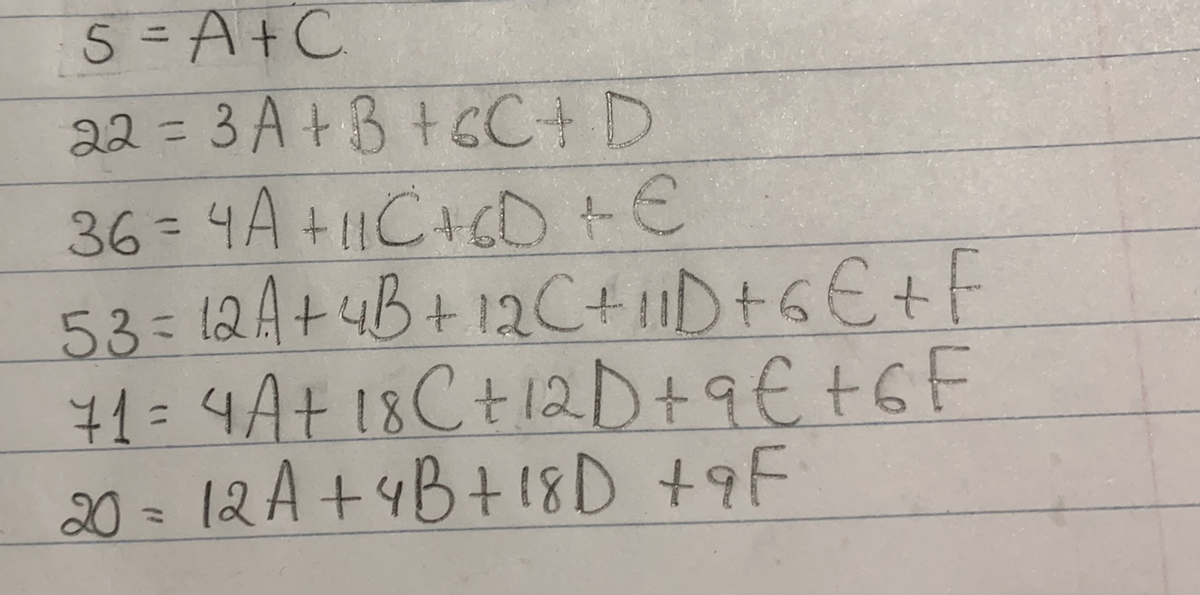 5 = A + C
22 = 3A + B + 6C + D
36 = 4A + 11C + 6D + E
53 = 12A + 4B + 12C + 11D + 6E + F
71 = 4A + 18C + 12D + 9E + 6F
20 = 12A + 4B + 18D + 9F